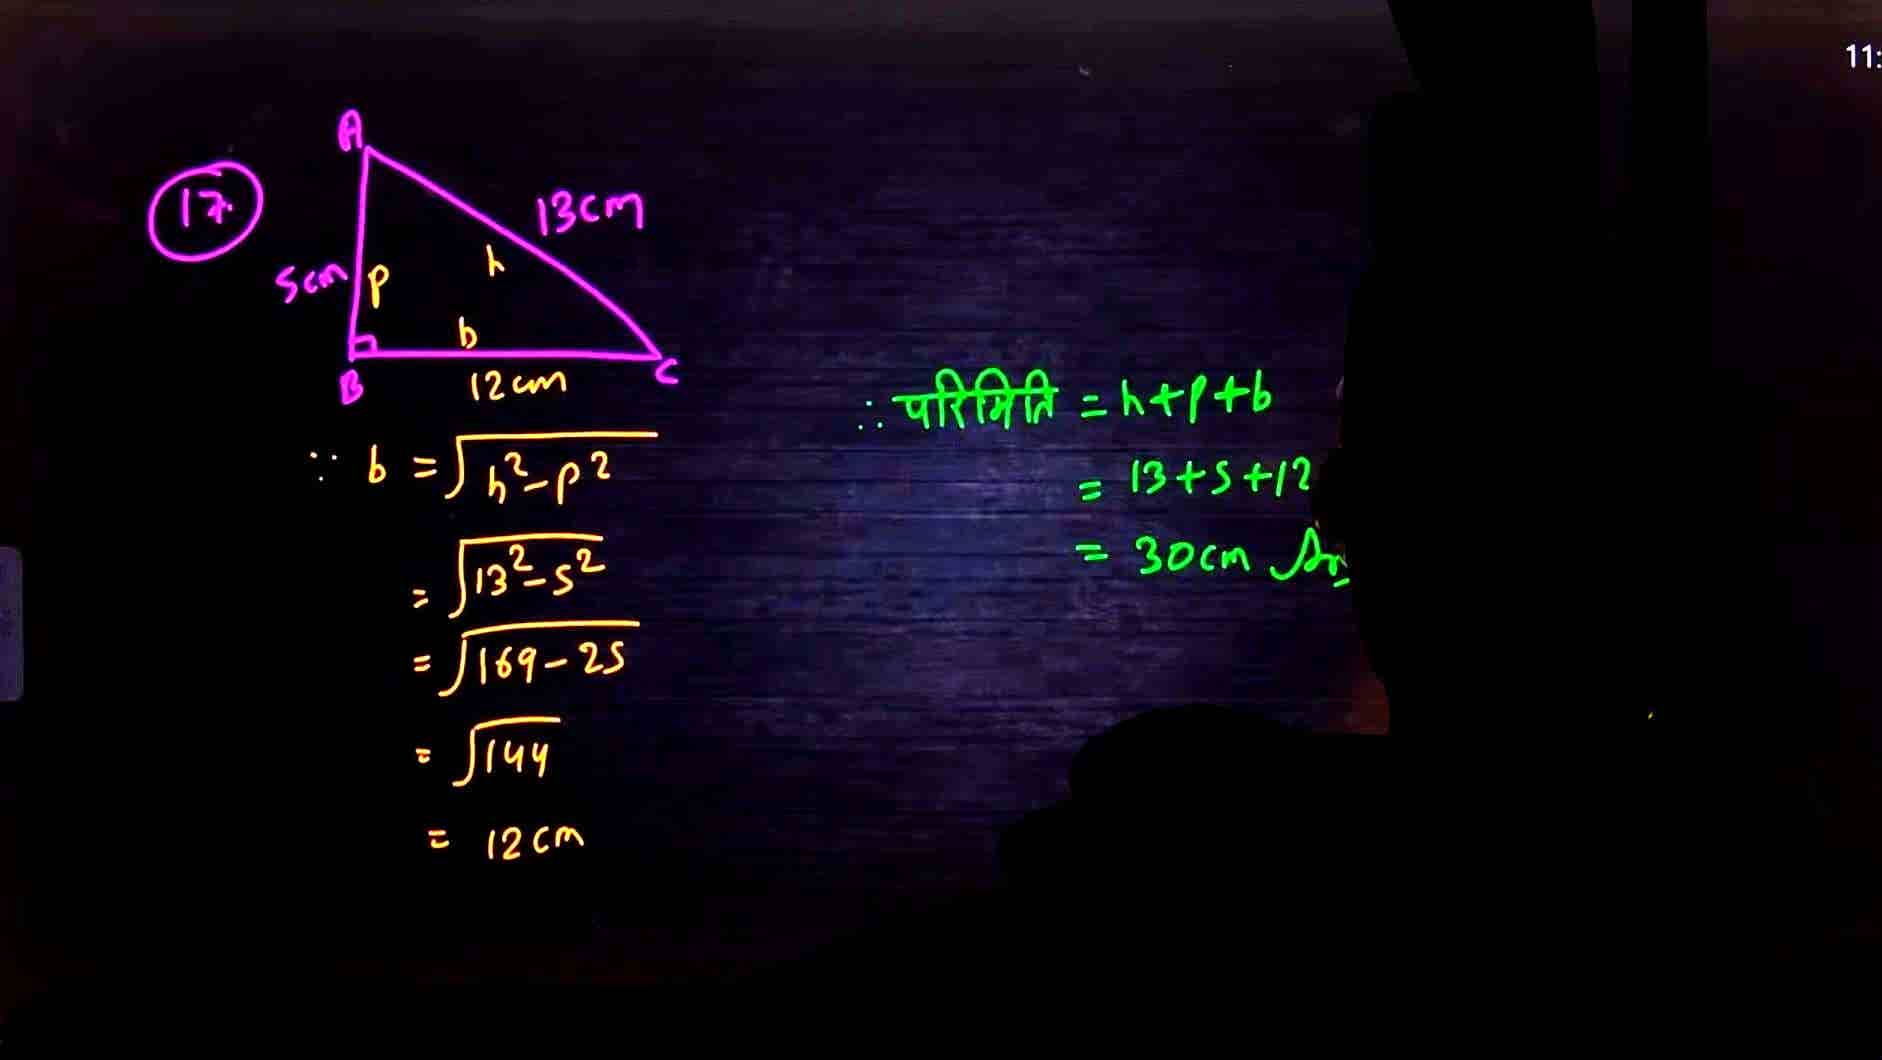 11:
17.
A
13cm
5cm p h
b
B 12cm C
∵ b = √h²-p²
= √13²-5²
= √169-25
= √144
= 12cm
∴ परिमिति = h+p+b
= 13+5+12
= 30cm Ans